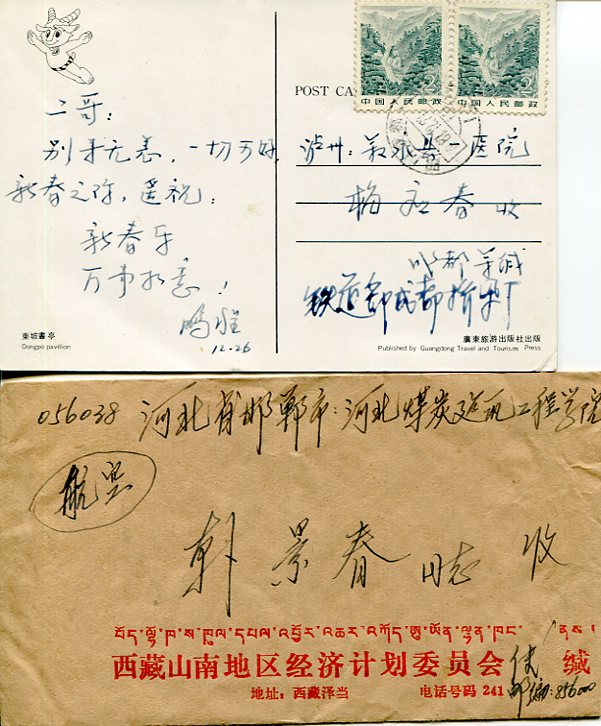 POST CA
2
2
中国人民邮政
中国人民邮政
二哥:
别来无恙,一切可好,
新春之际,遥祝:
新春乐
万事如意!
12.26
泸州:叙永县一医院
杨 春 收
成都 缄
铁道部成都桥梁厂
東坡書亭
Dongpo pavilion
廣東旅游出版社出版
Published by Guangdong Travel and Tourism Press
056038 河北省邯郸市:河北煤炭建筑工程学院
航空
韩景春 同志 收
བོད་ལྗོངས་ལྷོ་ཁ་ས་ཁུལ་དཔལ་འབྱོར་འཆར་འགོད་ཨུ་ཡོན་ལྷན་ཁང་ ནས།
西藏山南地区经济计划委员会 缄
地址:西藏泽当 电话号码 241
邮编:856000